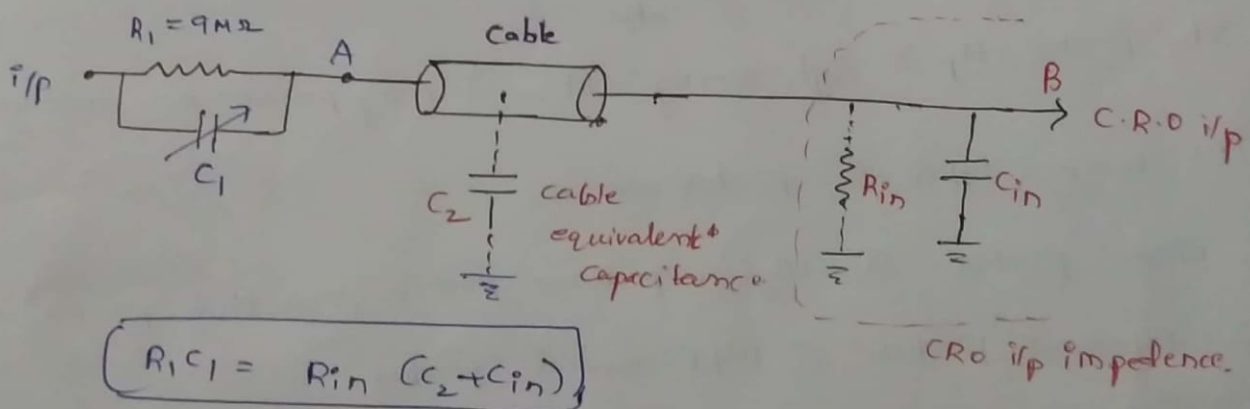 R1 = 9MΩ
i/p
C1
A
Cable
C2
cable
equivalent
capacitance.
Rin
Cin
B
C.R.O i/p
CRO i/p impedence.
R1C1 = Rin (C2+Cin)